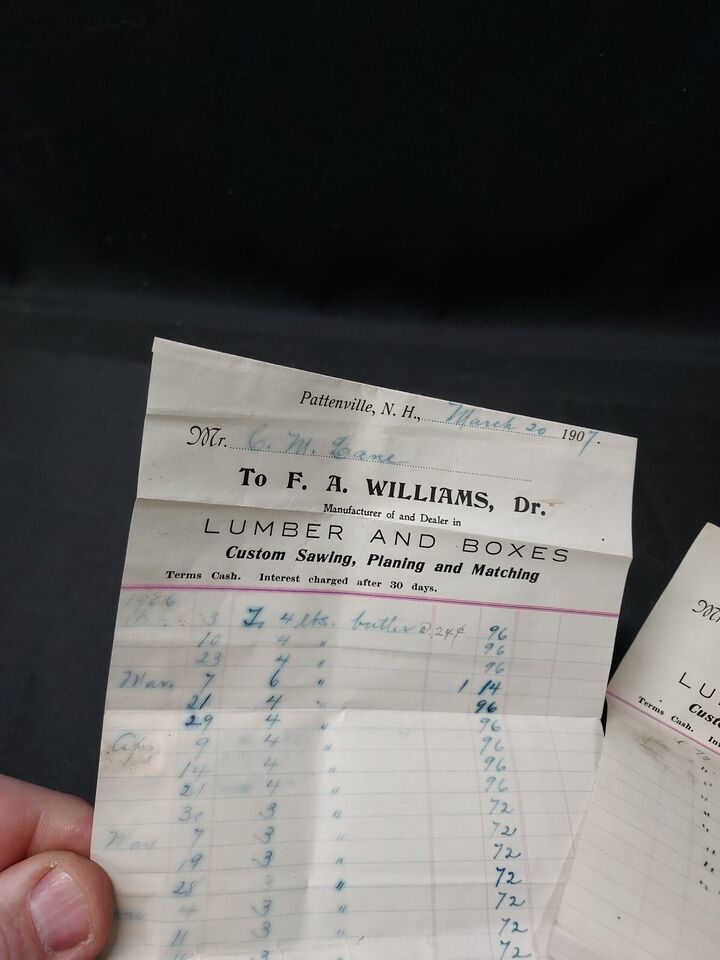 Pattenville, N. H., March 20 1907.
Mr. C. M. Lane
To F. A. WILLIAMS, Dr.
Manufacturer of and Dealer in
LUMBER AND BOXES
Custom Sawing, Planing and Matching
Terms Cash. Interest charged after 30 days.
1906
3 To 4 lbs. butter @ 24¢ 96
10 4 " 96
23 4 " 96
Mar. 7 6 " 1 14
21 4 " 96
29 4 " 96
Apr 9 4 " 96
14 4 " 96
21 4 " 96
30 3 " 72
May 7 3 " 72
19 3 " 72
28 3 " 72
4 3 " 72
11 3 " 72
3 " 72
Mr
LU
Custo
Terms Cash. In